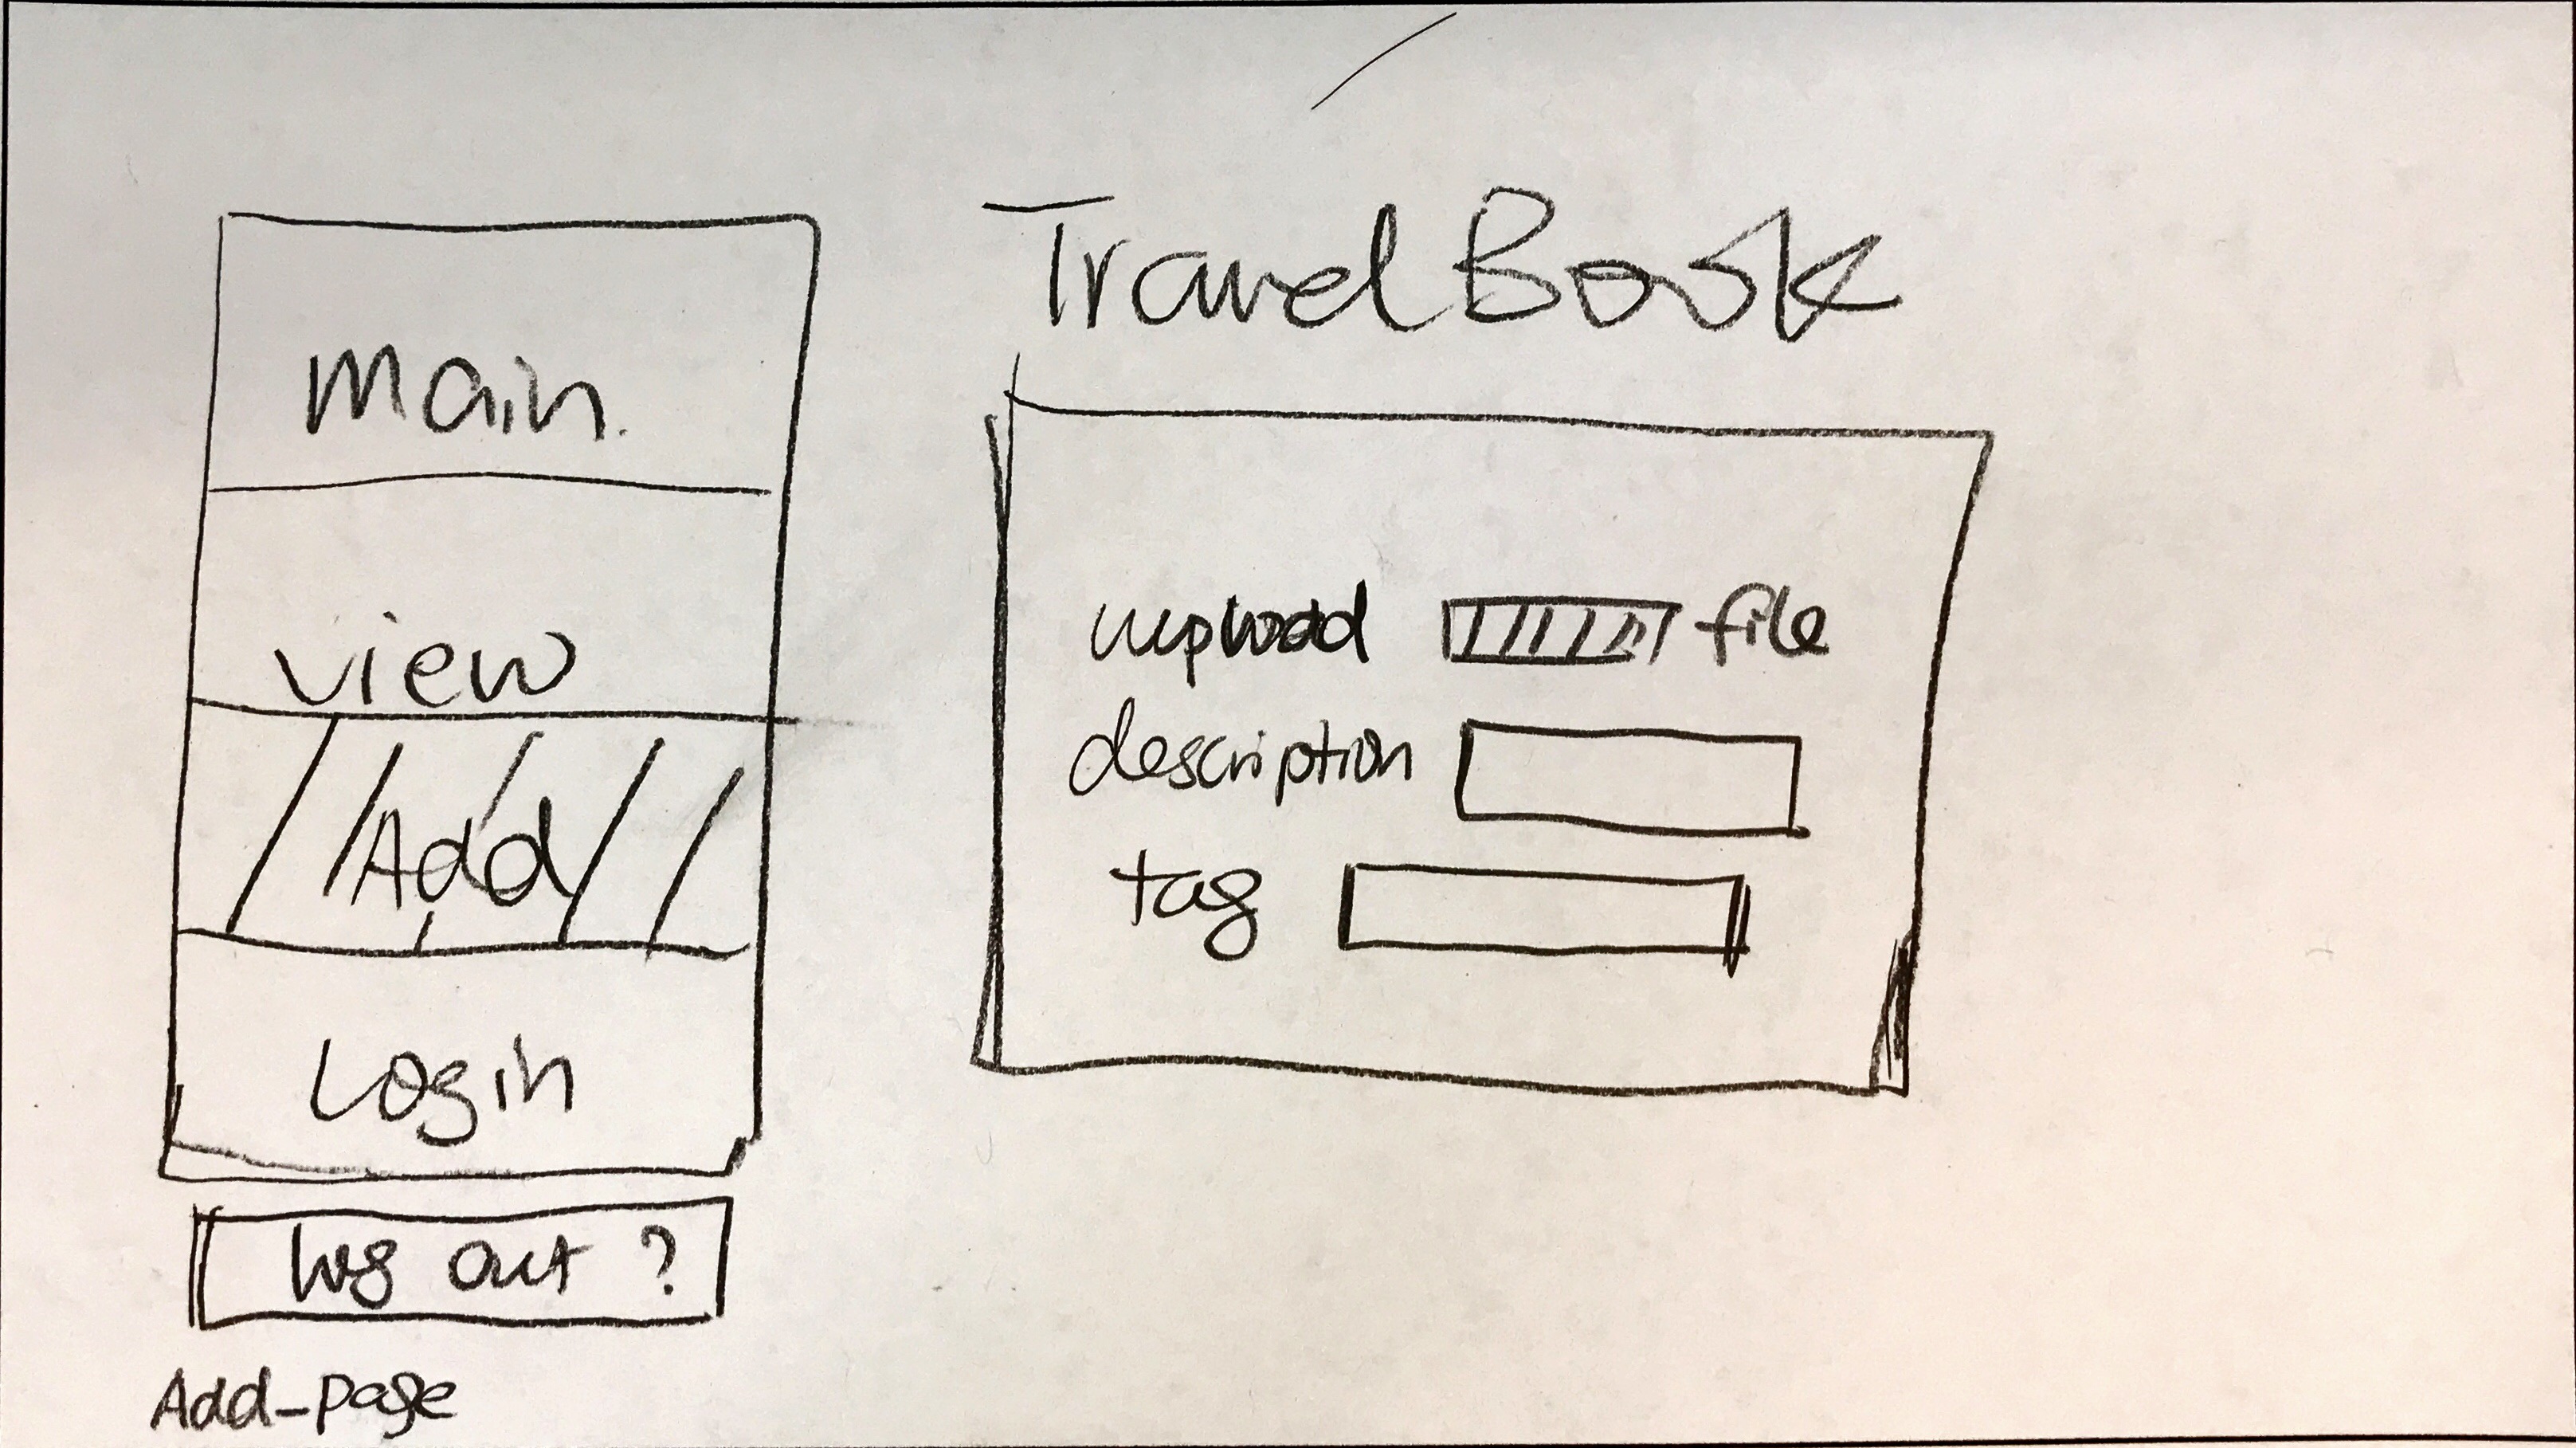 Main.
view
Add
Login
log out ?
Add-page
Travel Book
upload file
description
tag